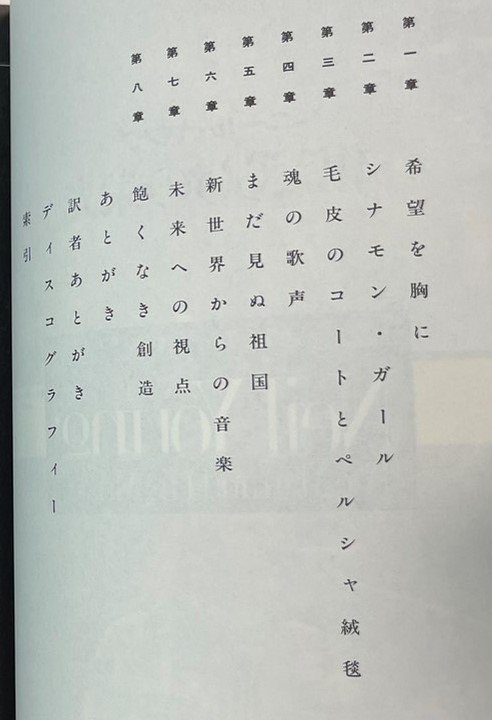 第一章 希望を胸に
第二章 シナモン・ガール
第三章 毛皮のコートとペルシャ絨毯
第四章 魂の歌声
第五章 まだ見ぬ祖国
第六章 新世界からの音楽
第七章 未来への視点
第八章 飽くなき創造
あとがき
訳者あとがき
ディスコグラフィー
索引
Neil Young